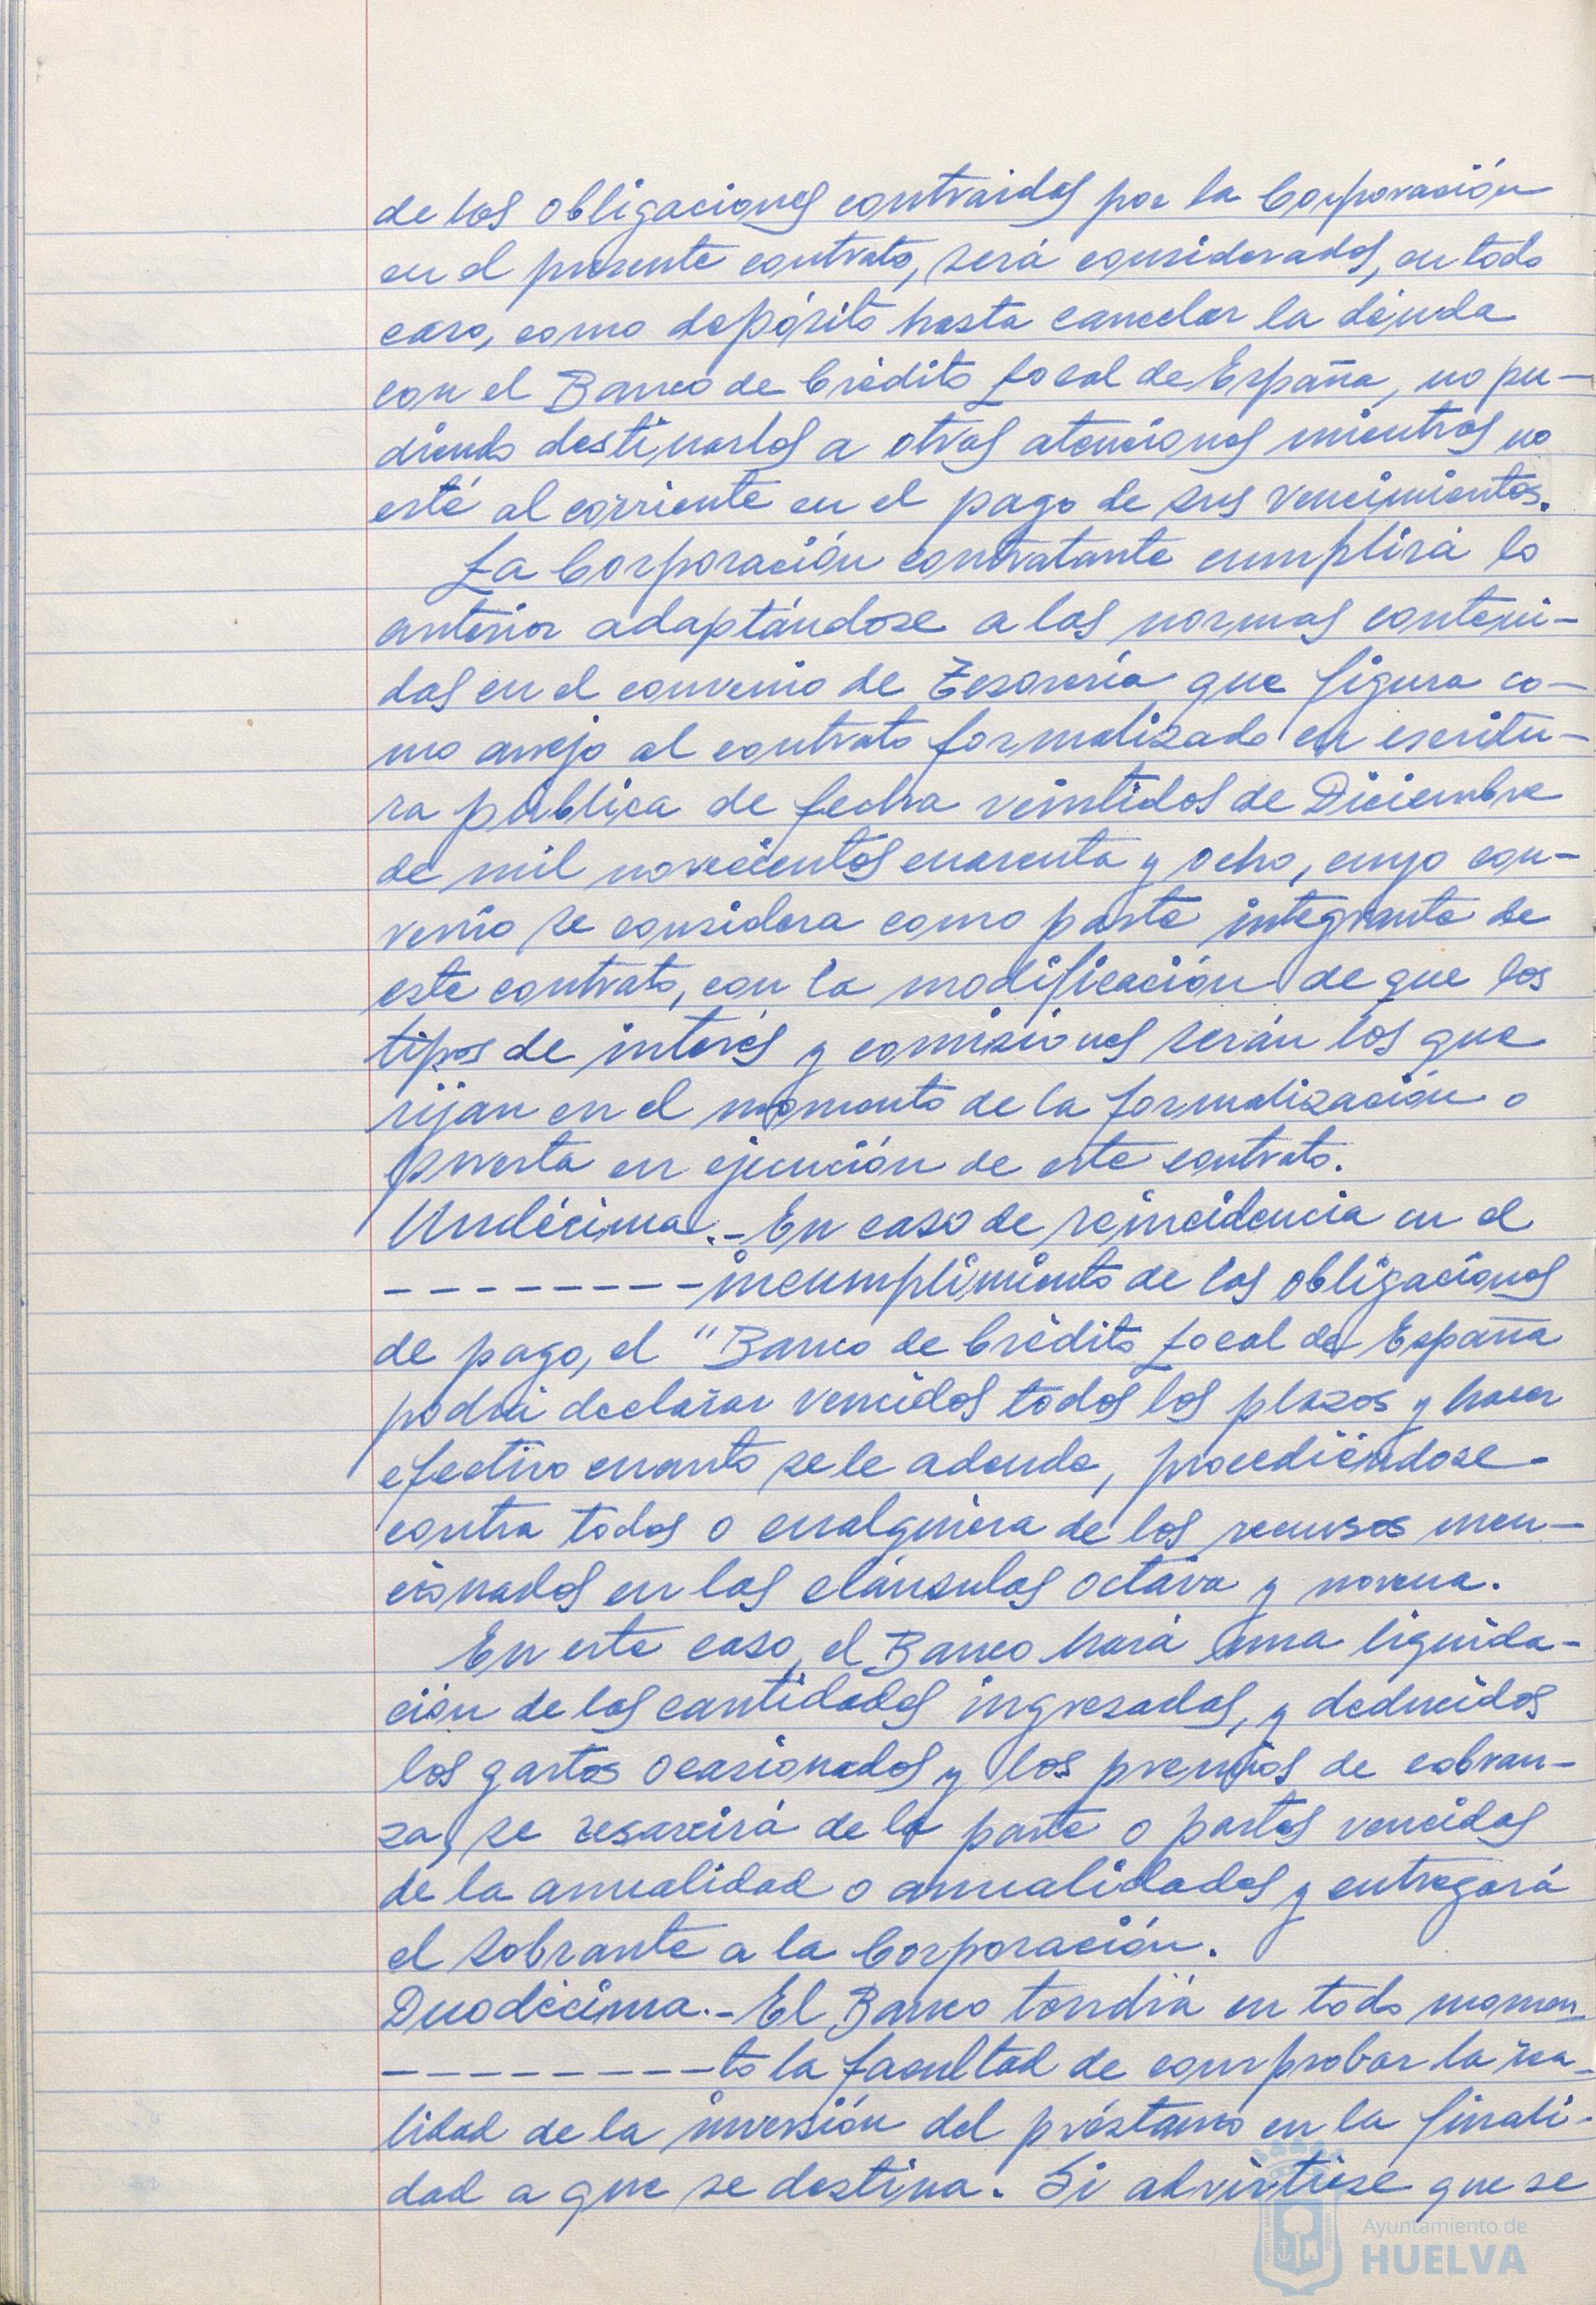 de las obligaciones contraidas por la Corporación
en el presente contrato, será considerados, en todo
caso, como depósito hasta cancelar la déuda
con el Banco de Crédito Local de España, no pu-
diendo destinarlos a otras atenciones mientras no
esté al corriente en el pago de sus vencimientos.
La Corporación contratante cumplirá lo
anterior adaptándose a las normas conteni-
das en el convenio de Tesorería que figura co-
mo anejo al contrato formalizado en escritu-
ra pública de fecha veintidos de Diciembre
de mil novecientos cuarenta y ocho, cuyo con-
venio se considera como parte integrante de
este contrato, con la modificación de que los
tipos de interés y comisiones serán los que
rijan en el momento de la formalización o
puesta en ejecución de este contrato.
Undécima.- En caso de reincidencia en el
--------incumplimiento de las obligaciones
de pago, el "Banco de Crédito Local de España
podrá declarar vencidos todos los plazos y hacer
efectivo cuanto se le adeude, procediéndose-
contra todos o cualquiera de los recursos men-
cionados en las cláusulas octava y novena.
En este caso, el Banco hará una liquida-
ción de las cantidades ingresadas, y deducidos
los gastos ocasionados y los premios de cobran-
za, se resarcirá de la parte o partes vencidas
de la anualidad o anualidades y entregará
el sobrante a la Corporación.
Duodécima.- El Banco tendrá en todo momen-
---------to la facultad de comprobar la rea-
lidad de la inversión del préstamo en la finali-
dad a que se destina. Si advirtiese que se
Ayuntamiento de
HUELVA